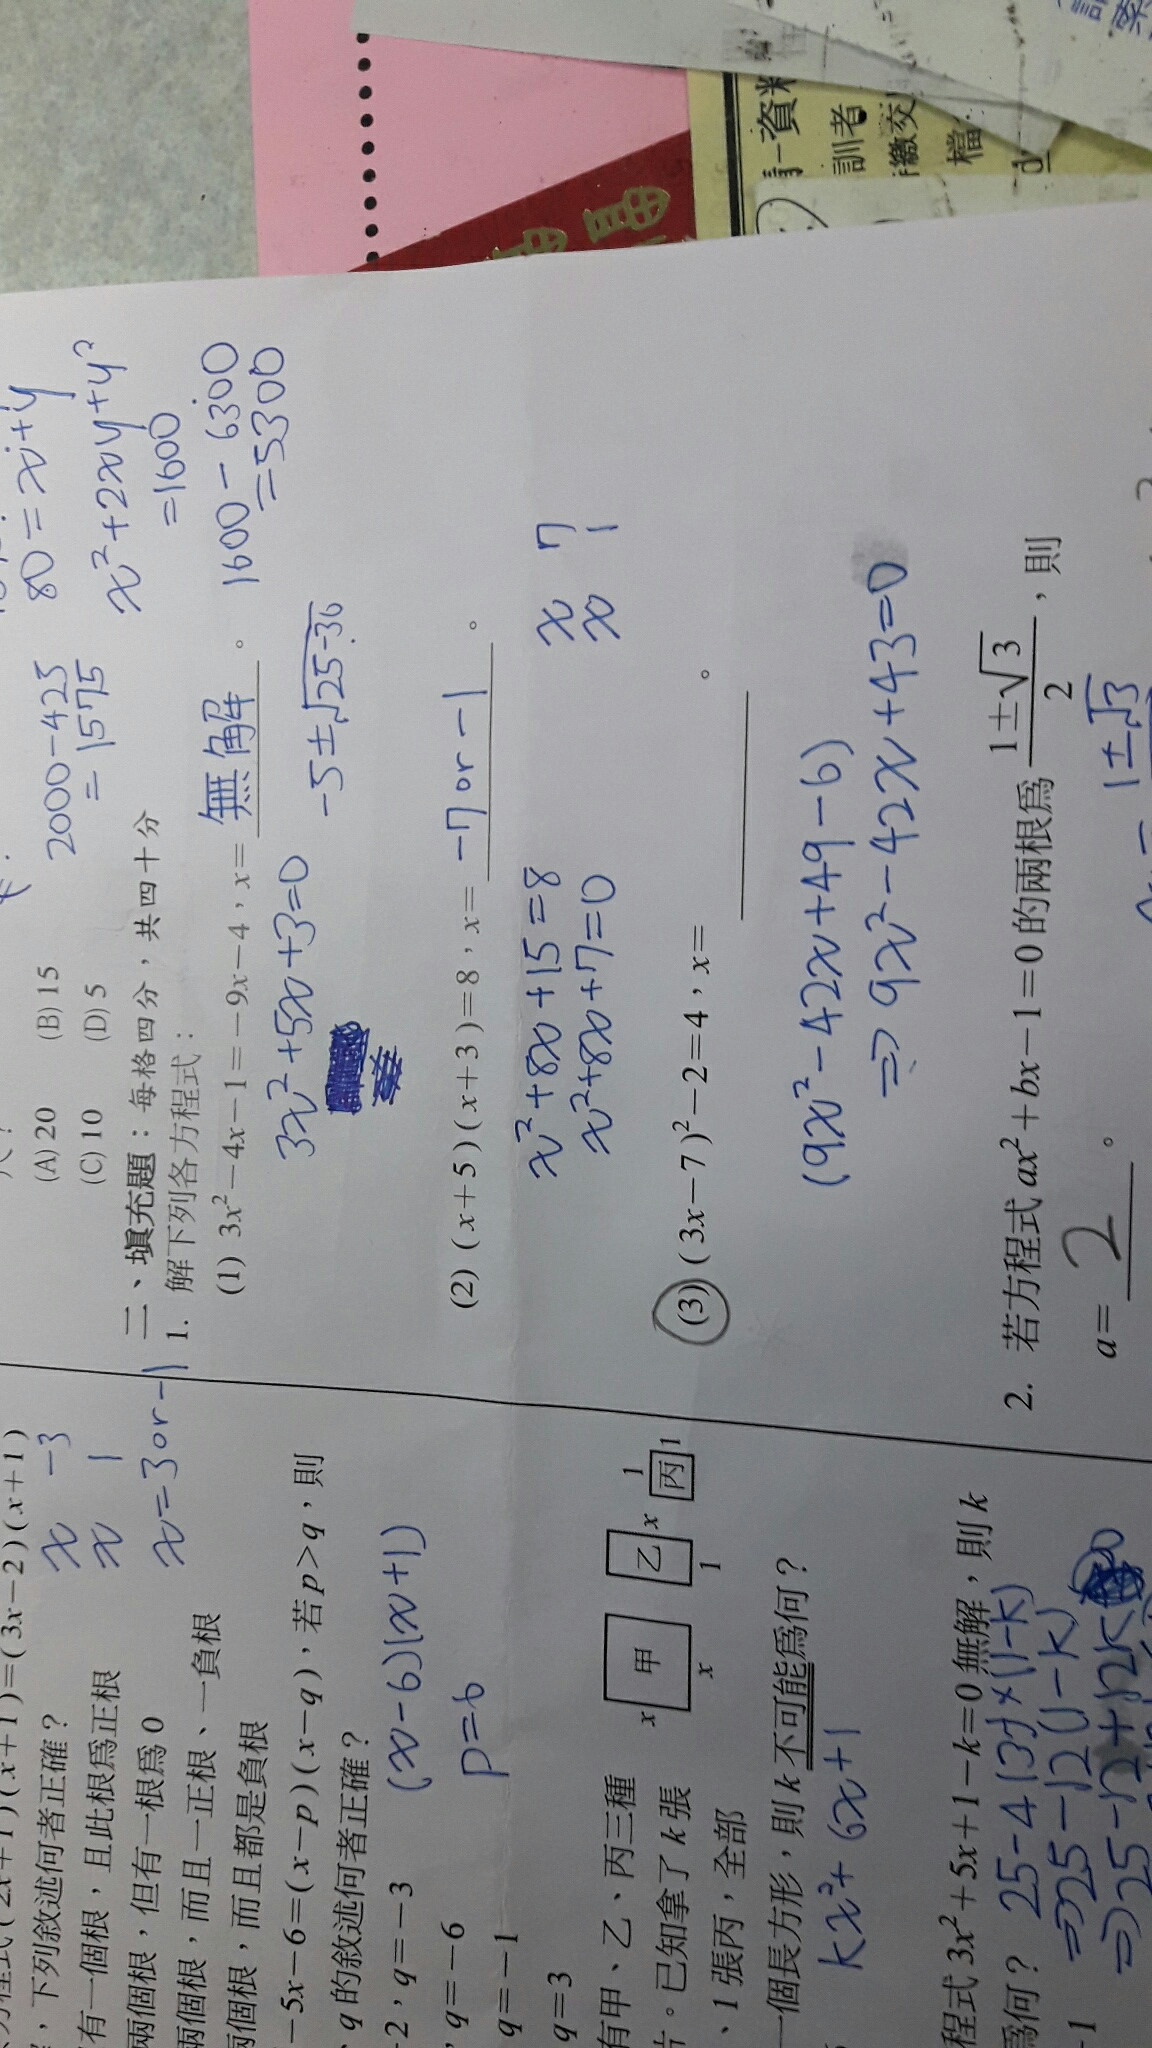 (2x+1)(x+1)=(3x-2)(x+1)
，下列敘述何者正確？
有一個根，且此根爲正根
兩個根，但有一根爲0
兩個根，而且一正根、一負根
兩個根，而且都是負根
x -3
x 1
x=3or-1
-5x-6=(x-p)(x-q)，若p>q，則
、q的敘述何者正確？
2，q=-3
，q=-6
q=-1
q=3
(x-6)(x+1)
p=6
有甲、乙、丙三種
片。已知拿了k張
、1張丙，全部
一個長方形，則k不可能爲何？
甲 x x
乙 x 1
丙 1 1
kx²+6x+1
程式3x²+5x+1-k=0無解，則k
爲何？
25-4(3)×(1-k)
⇒25-12(1-k)
⇒25-12+12k
-1
(A)20 (B)15
(C)10 (D)5
2000-425
=1575
80=x+y
x²+2xy+y²
=1600
1600-6300
=5300
二、填充題：每格四分，共四十分
1. 解下列各方程式：
(1) 3x²-4x-1=-9x-4，x=無解。
3x²+5x+3=0
-5±√25-36
(2) (x+5)(x+3)=8，x=-7or-1。
x²+8x+15=8
x²+8x+7=0
x 7
x 1
(3) (3x-7)²-2=4，x=。
(9x²-42x+49-6)
⇒9x²-42x+43=0
2. 若方程式ax²+bx-1=0的兩根爲1±√3/2，則
a=2。
1±√3
資料
訓者
繳交
檔